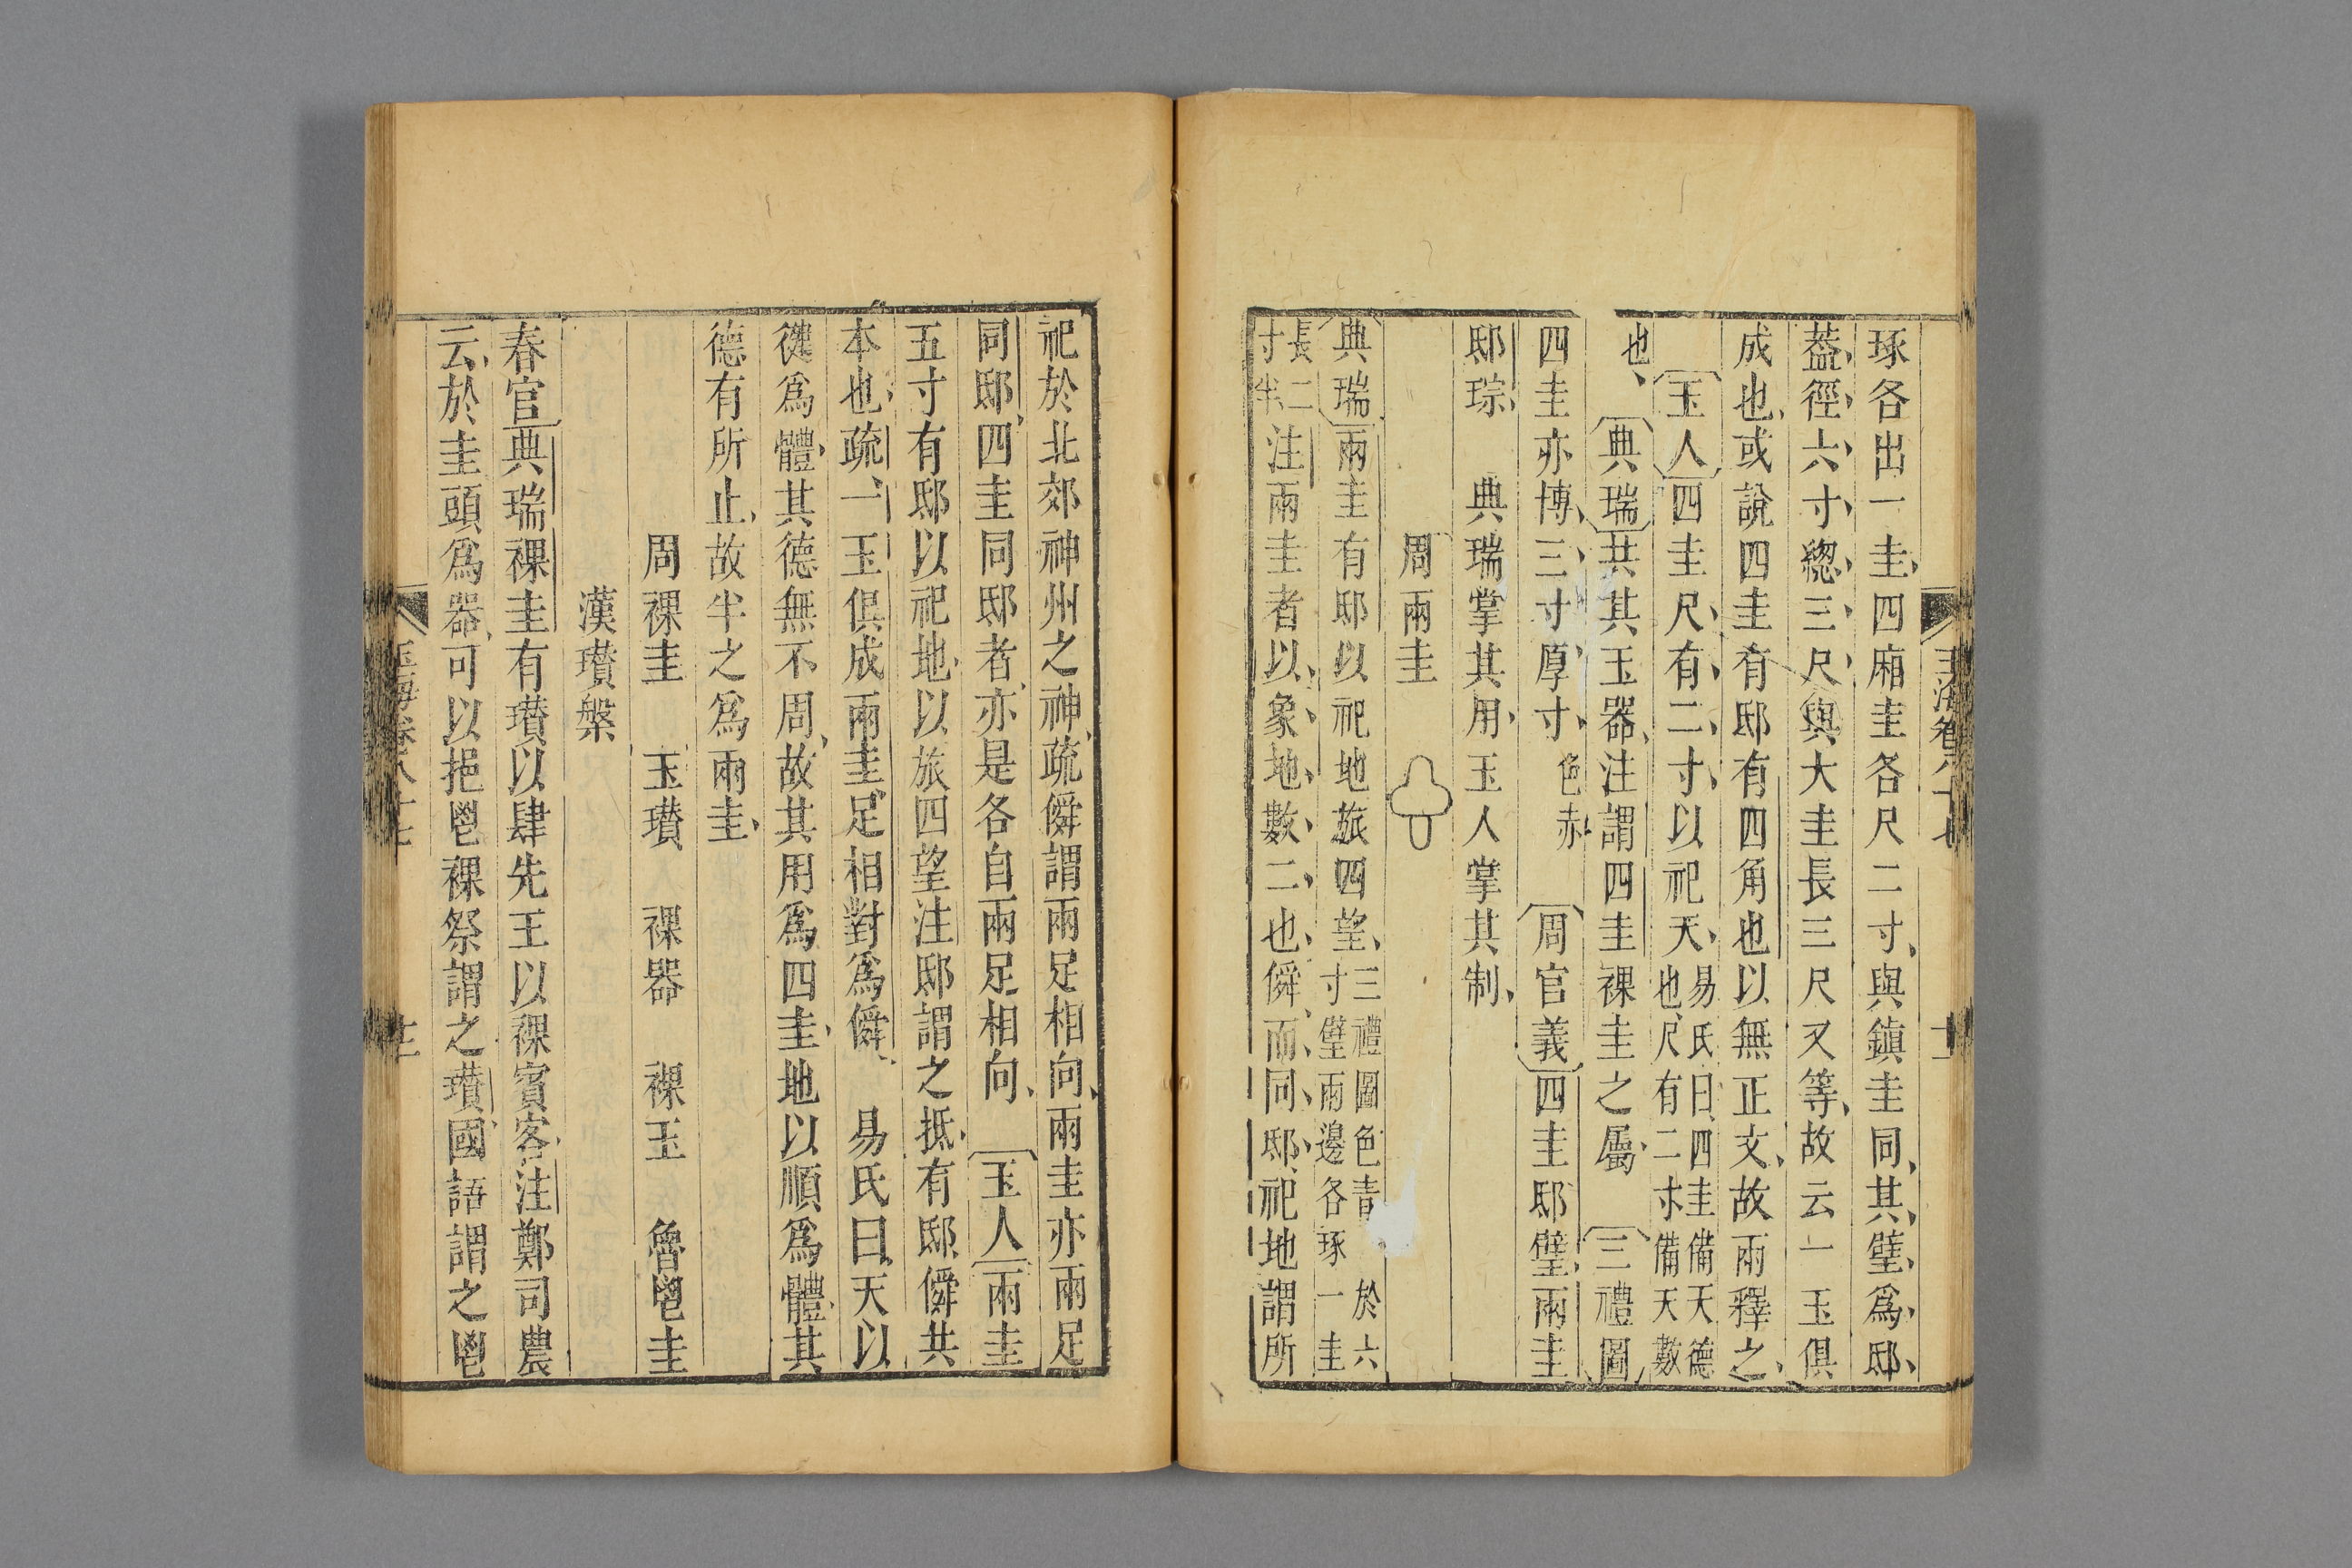 琢各出一圭四廂圭各尺二寸與鎮圭同其璧爲邸
葢徑六寸緫三尺與大圭長三尺又等故云一玉俱
成也或說四圭有邸有四角也以無正文故兩釋之
玉人四圭尺有二寸以祀天易氏曰四圭備天德也尺有二寸備天數
也典瑞共其玉器注謂四圭祼圭之屬 三禮圖
四圭亦博三寸厚寸色赤 周官義四圭邸璧兩圭
邸琮 典瑞掌其用玉人掌其制
周兩圭
典瑞兩圭有邸以祀地旅四望三禮圖色青 於六寸璧兩邊各琢一圭
長二寸半注兩圭者以象地數二也僢而同邸祀地謂所
玉海卷八十七
祀於北郊神州之神疏僢謂兩足相向兩圭亦兩足
同邸四圭同邸者亦是各自兩足相向 玉人兩圭
五寸有邸以祀地以旅四望注邸謂之抵有邸僢共
本也疏一玉俱成兩圭足相對爲僢 易氏曰天以
徤爲體其德無不周故其用爲四圭地以順爲體其
德有所止故半之爲兩圭
周祼圭 玉瓚 祼器 祼玉 魯鬯圭
漢瓚槃
春官典瑞祼圭有瓚以肆先王以祼賓客注鄭司農
云於圭頭爲器可以挹鬯祼祭謂之瓚國語謂之鬯
玉海卷八十七